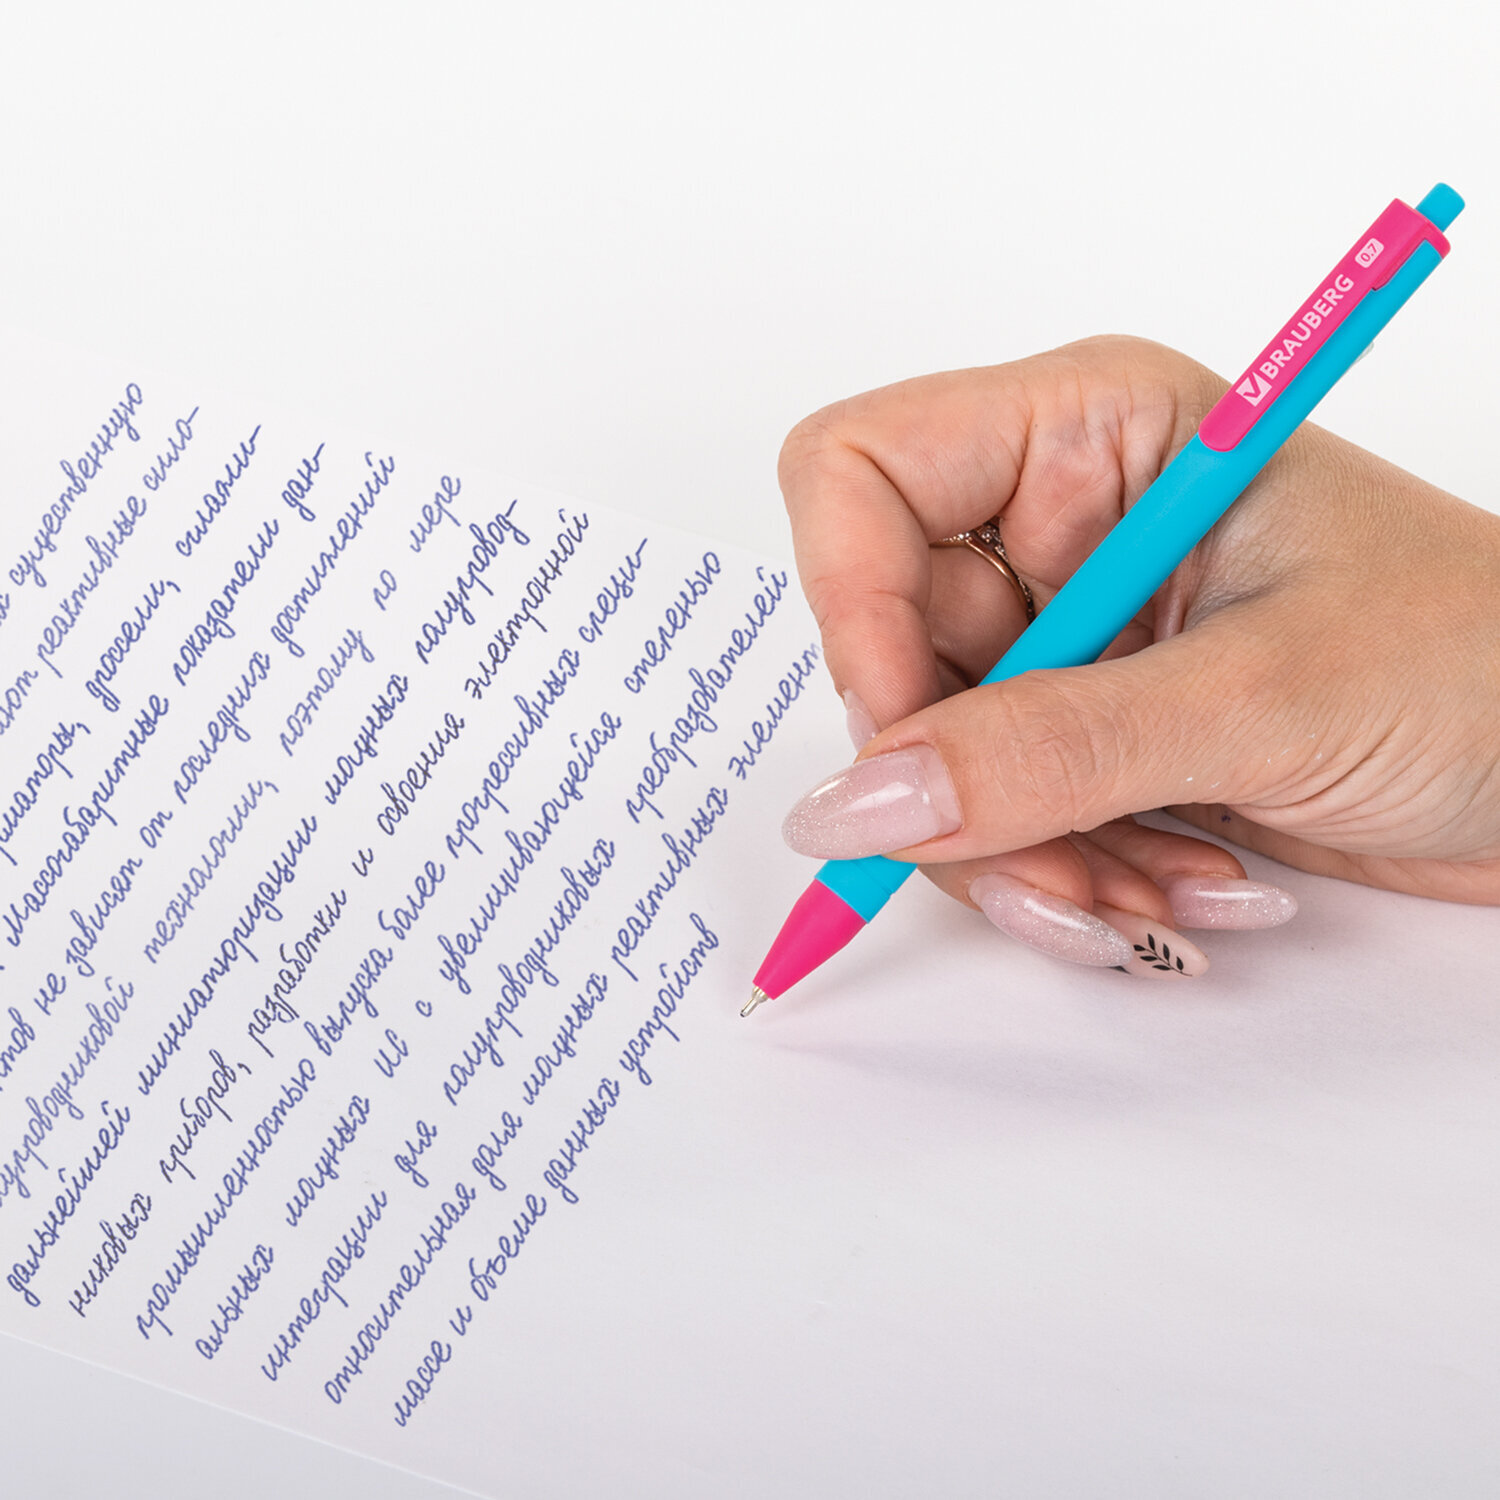 существенную
реактивные сило-
дроссели, силами-
Массогабаритные показатели дан-
не зависят от последних достижений
технологии, поэтому по мере
дальнейшей миниатюризации мощных полупровод-
никовых приборов, разработки и освоения электронной
промышленностью выпуска более прогрессивных специ-
альных мощных ИС с увеличивающейся степенью
интеграции для полупроводниковых преобразователей
относительная доля мощных реактивных элемент
массе и объеме данных устройств
BRAUBERG 0.7